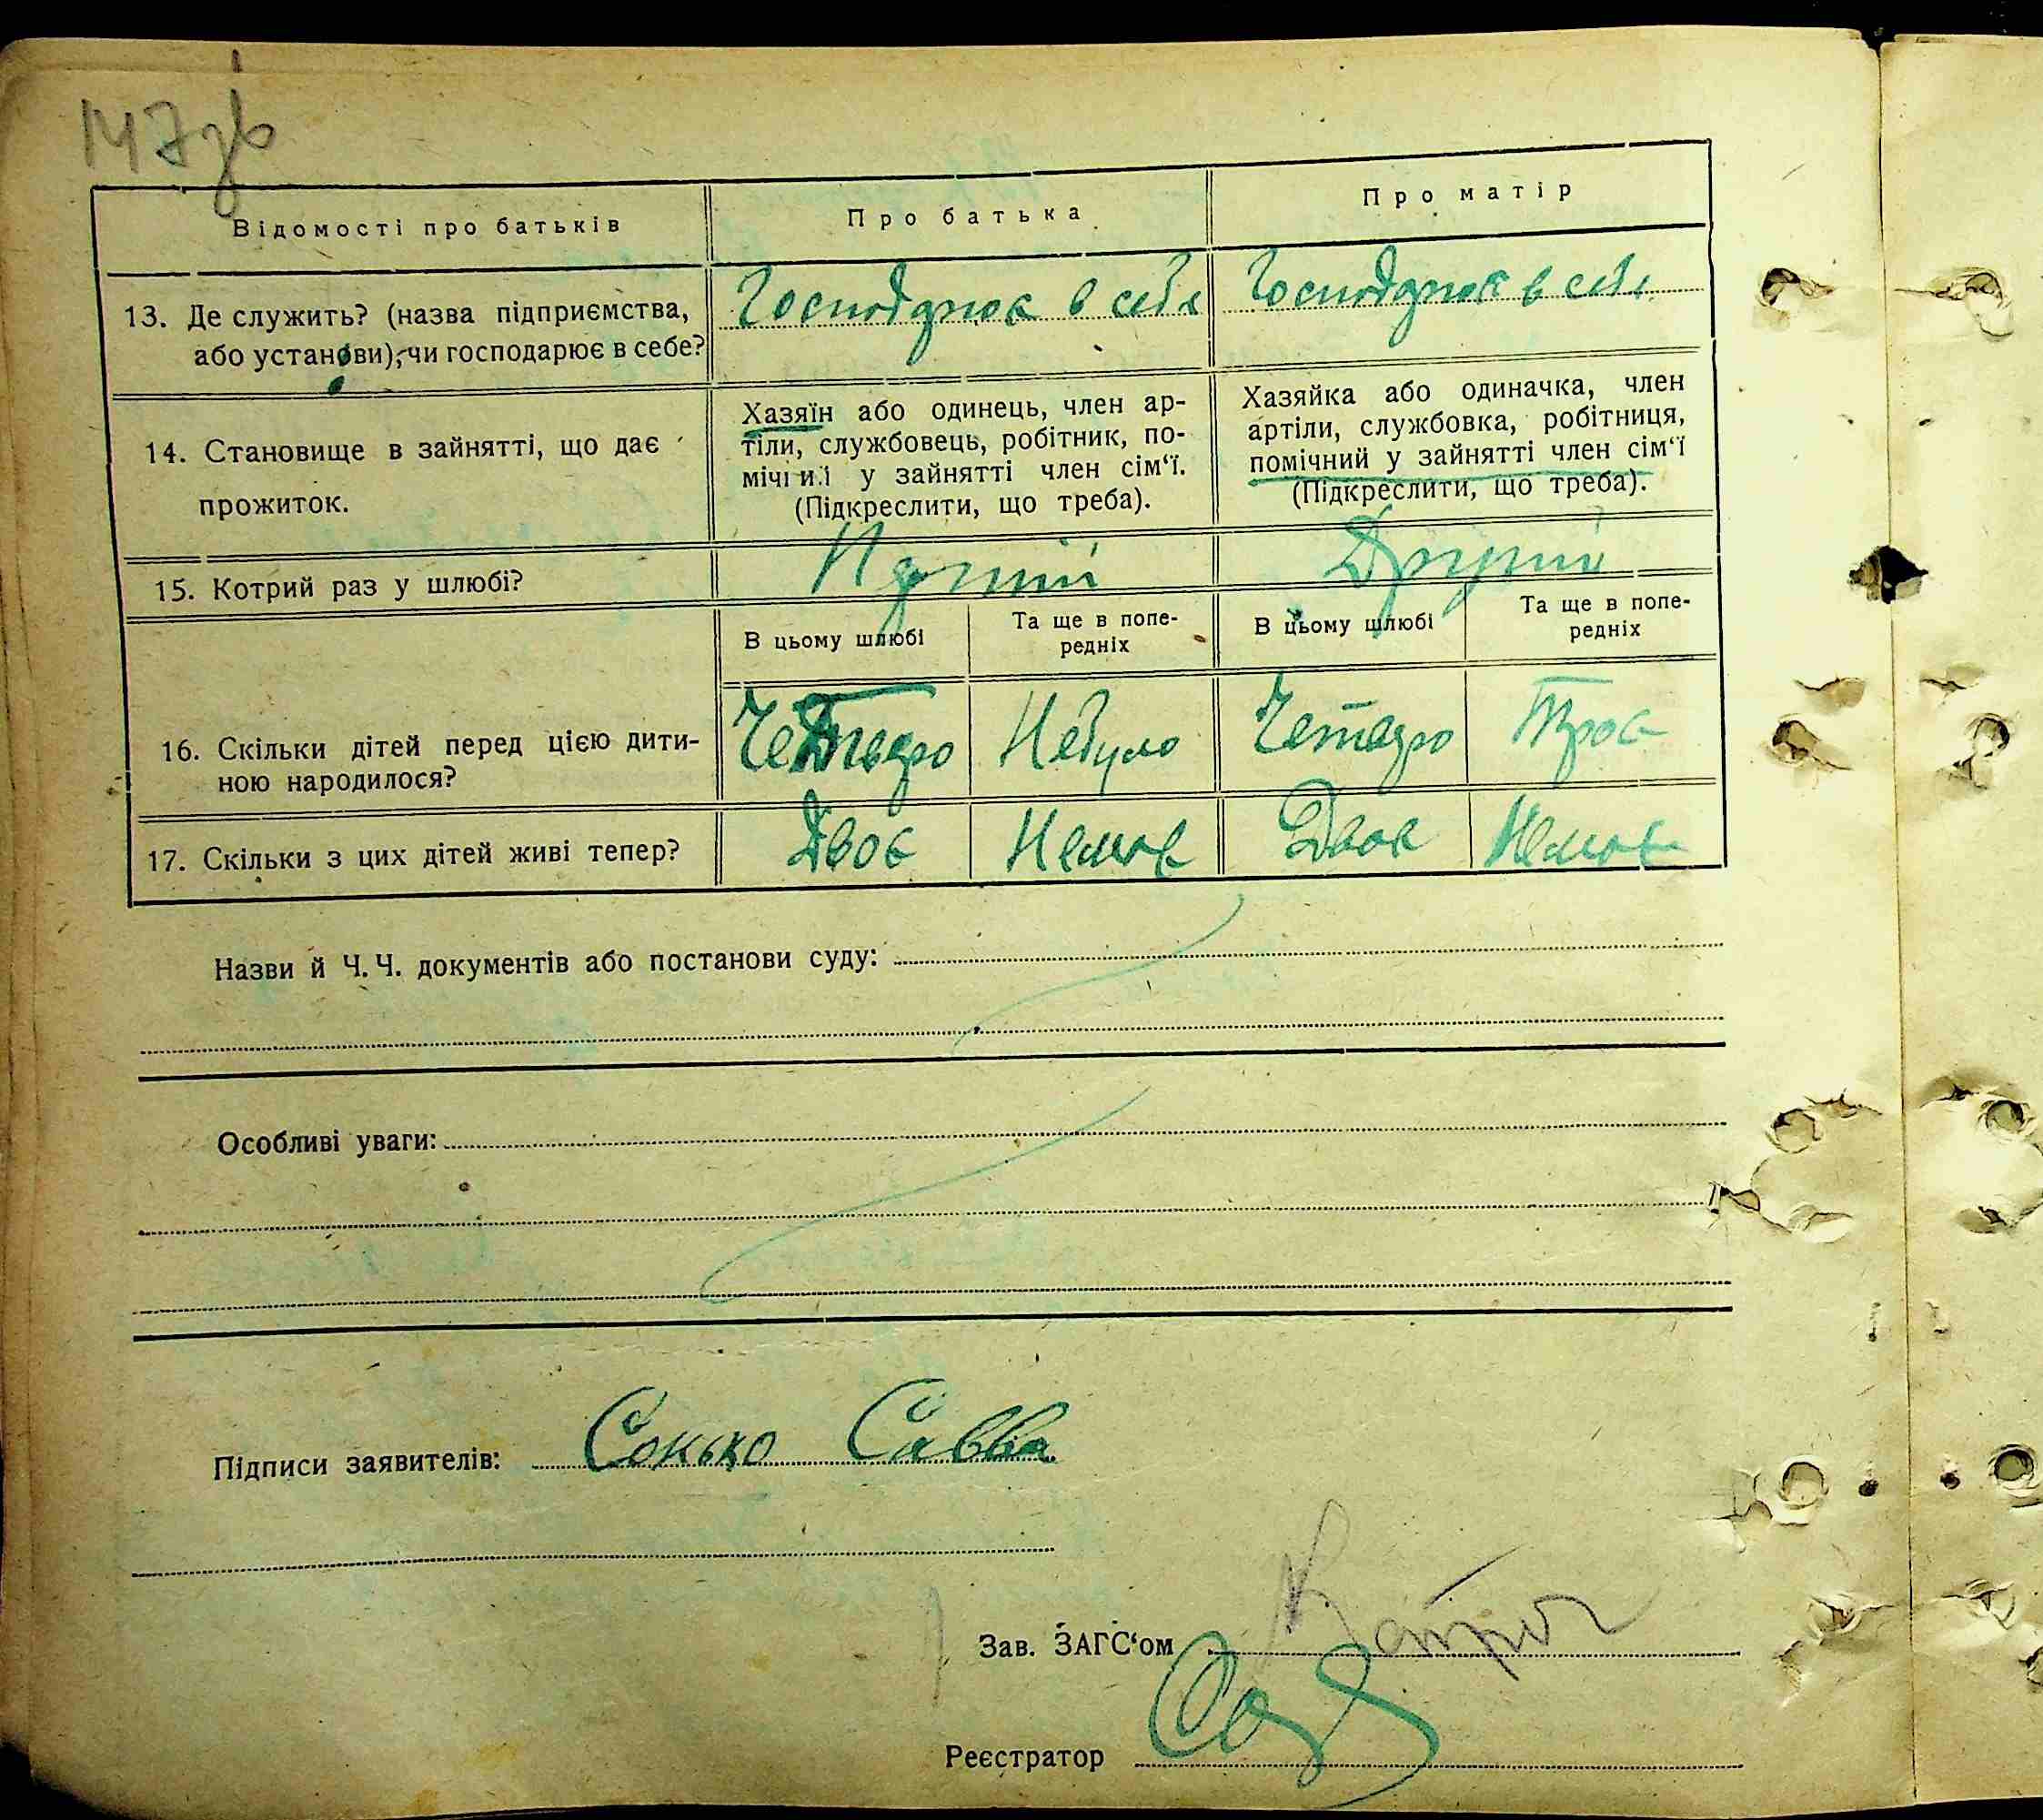 147зв
Відомості про батьків
Про батька
Про матір
13. Де служить? (назва підприємства,
або установи), чи господарює в себе?
Господарює в себе
Господарює в себе
14. Становище в зайнятті, що дає
прожиток.
Хазяїн або одинець, член ар-
тіли, службовець, робітник, по-
мічний у зайнятті член сім‘ї.
(Підкреслити, що треба).
Хазяйка або одиначка, член
артіли, службовка, робітниця,
помічний у зайнятті член сім‘ї
(Підкреслити, що треба).
15. Котрий раз у шлюбі?
Другий
В цьому шлюбі
Та ще в попе-
редніх
В цьому шлюбі
Та ще в попе-
редніх
16. Скільки дітей перед цією дити-
ною народилося?
Четверо
Небуло
Четверо
Троє
17. Скільки з цих дітей живі тепер?
Двоє
Немає
Двоє
Немає
Назви й Ч.Ч. документів або постанови суду:
Особливі уваги:
Підписи заявителів: Сонько Савва
Зав. ЗАГС‘ом
Реєстратор